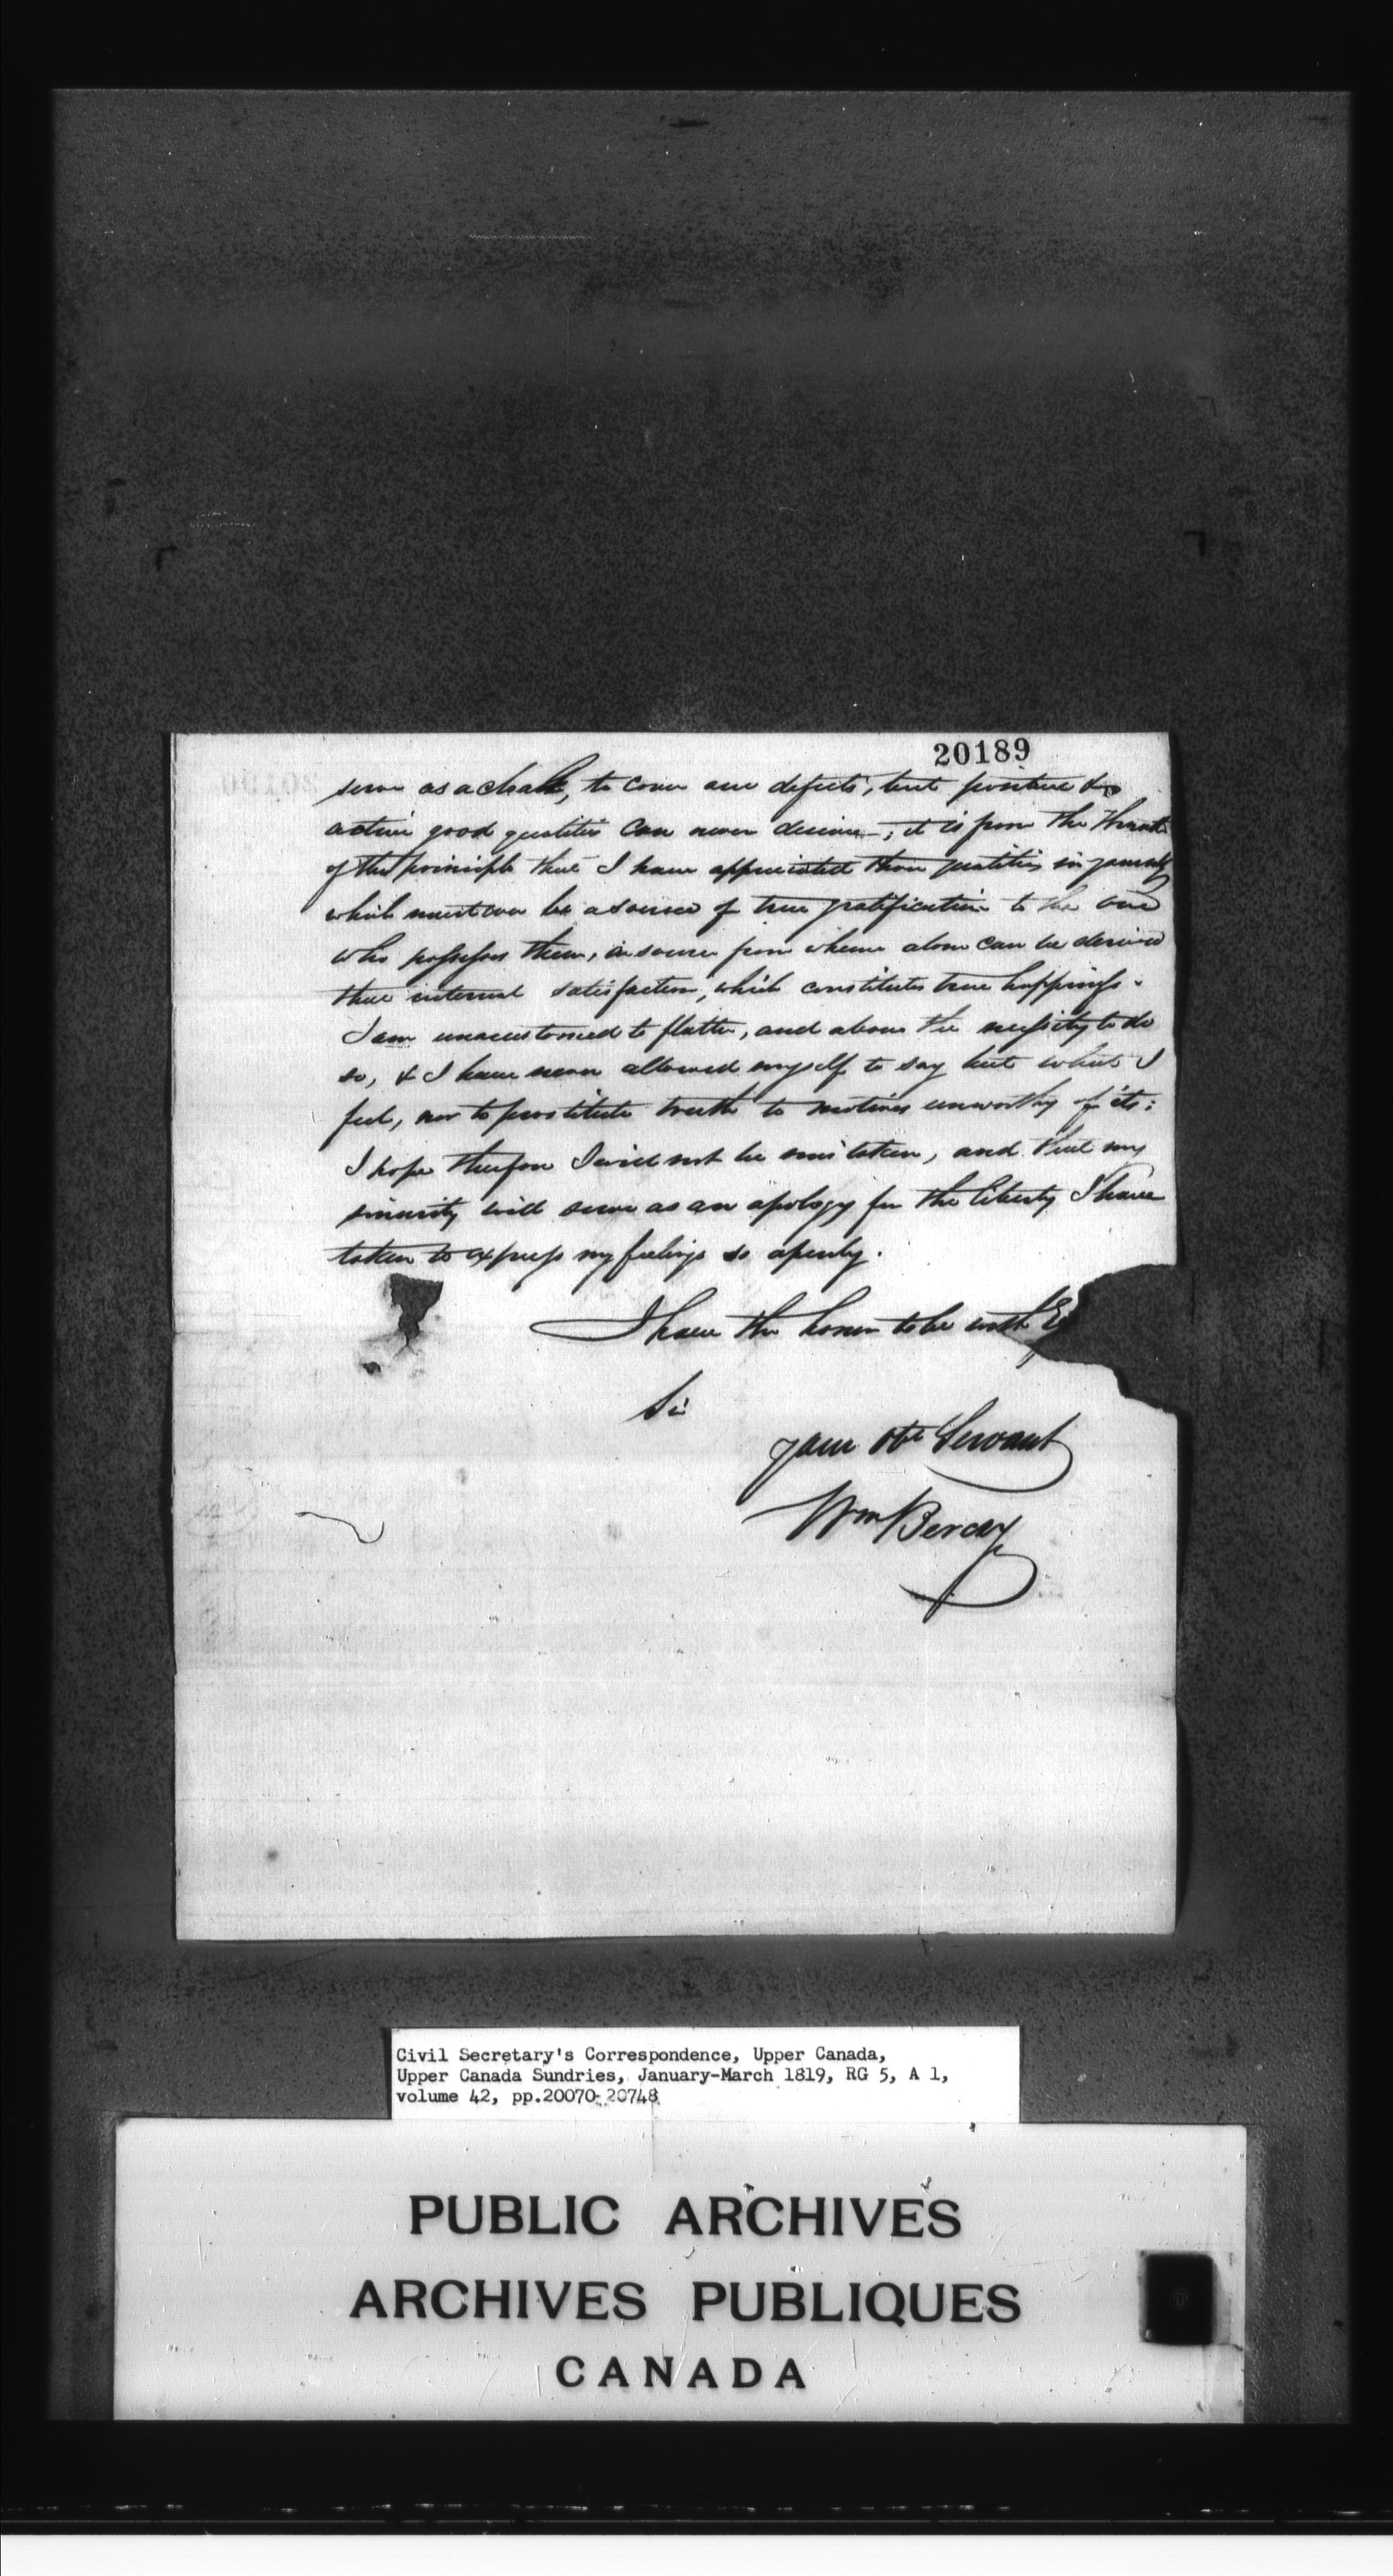 20189
serve as a cloak, to cover our defects, but positive &
active good qualities can never deceive; it is from the
of this principle that I have appreciated those qualities in yourself
which must ever be a source of true gratification to the one
who possesses them, a source from whence alone can be derived
that internal satisfaction, which constitutes true happiness.
I am unaccustomed to flatter, and above the necessity to do
so, & I have never allowed myself to say but what I
feel, nor to prostitute truth to motives unworthy of its;
I hope therefore I will not be mistaken, and that my
sincerity will serve as an apology for the liberty I have
taken to express my feelings so openly.
I have the honor to be with
Sir
your Obt Servant
Wm Berczy
Civil Secretary's Correspondence, Upper Canada,
Upper Canada Sundries, January-March 1819, RG 5, A 1,
volume 42, pp.20070-20748
PUBLIC ARCHIVES
ARCHIVES PUBLIQUES
CANADA